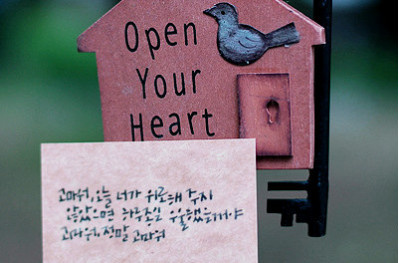 Open
Your
Heart
고마워, 오늘 너가 위로해 주지
않았으면 하루종일 우울했을거야
고마워, 정말 고마워